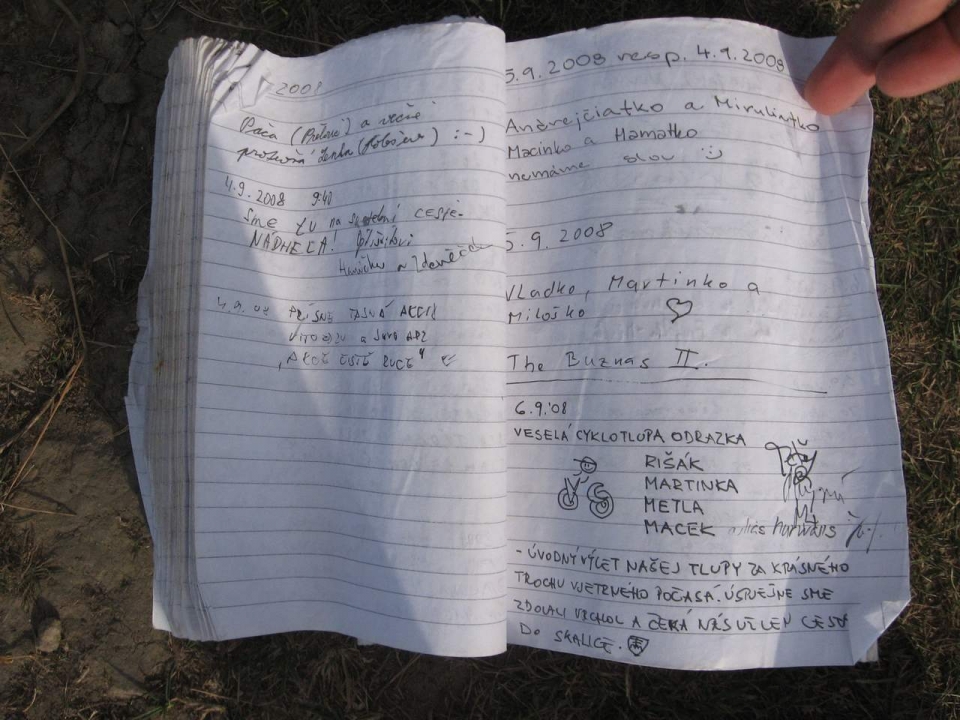 2008
Pača ( ) a věčně
:-)
4.9.2008 9:40
Sme tu na svatební cestě.
NÁDHERA!
a Zdeněček
4.9.08 PŘÍSNĚ TAJNÁ AKCE
a
"AKCE ČISTÉ RUCE"
5.9.2008 resp. 4.9.2008
Andrejčiatko a Mirulintko
Macinko a Mamatko
nemáme slov :-)
5.9.2008
Vladko, Martinko a
Miloško
The Buznas II.
6.9.'08
VESELÁ CYKLOTLUPA ODRAZKA
RIŠÁK
MARTINKA
METLA
MACEK
- ÚVODNÝ VÝLET NAŠEJ TLUPY ZA KRÁSNÉHO
TROCHU VETERNÉHO POČASÁ. ÚSPEJNE SME
ZDOLALI VRCHOL A ČEKÁ NÁS UŽ LEN CESTA
DO SKALICE.